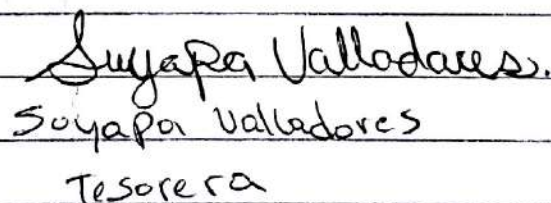 Suyapa Valladares.
Soyapa Valladores
Tesorera